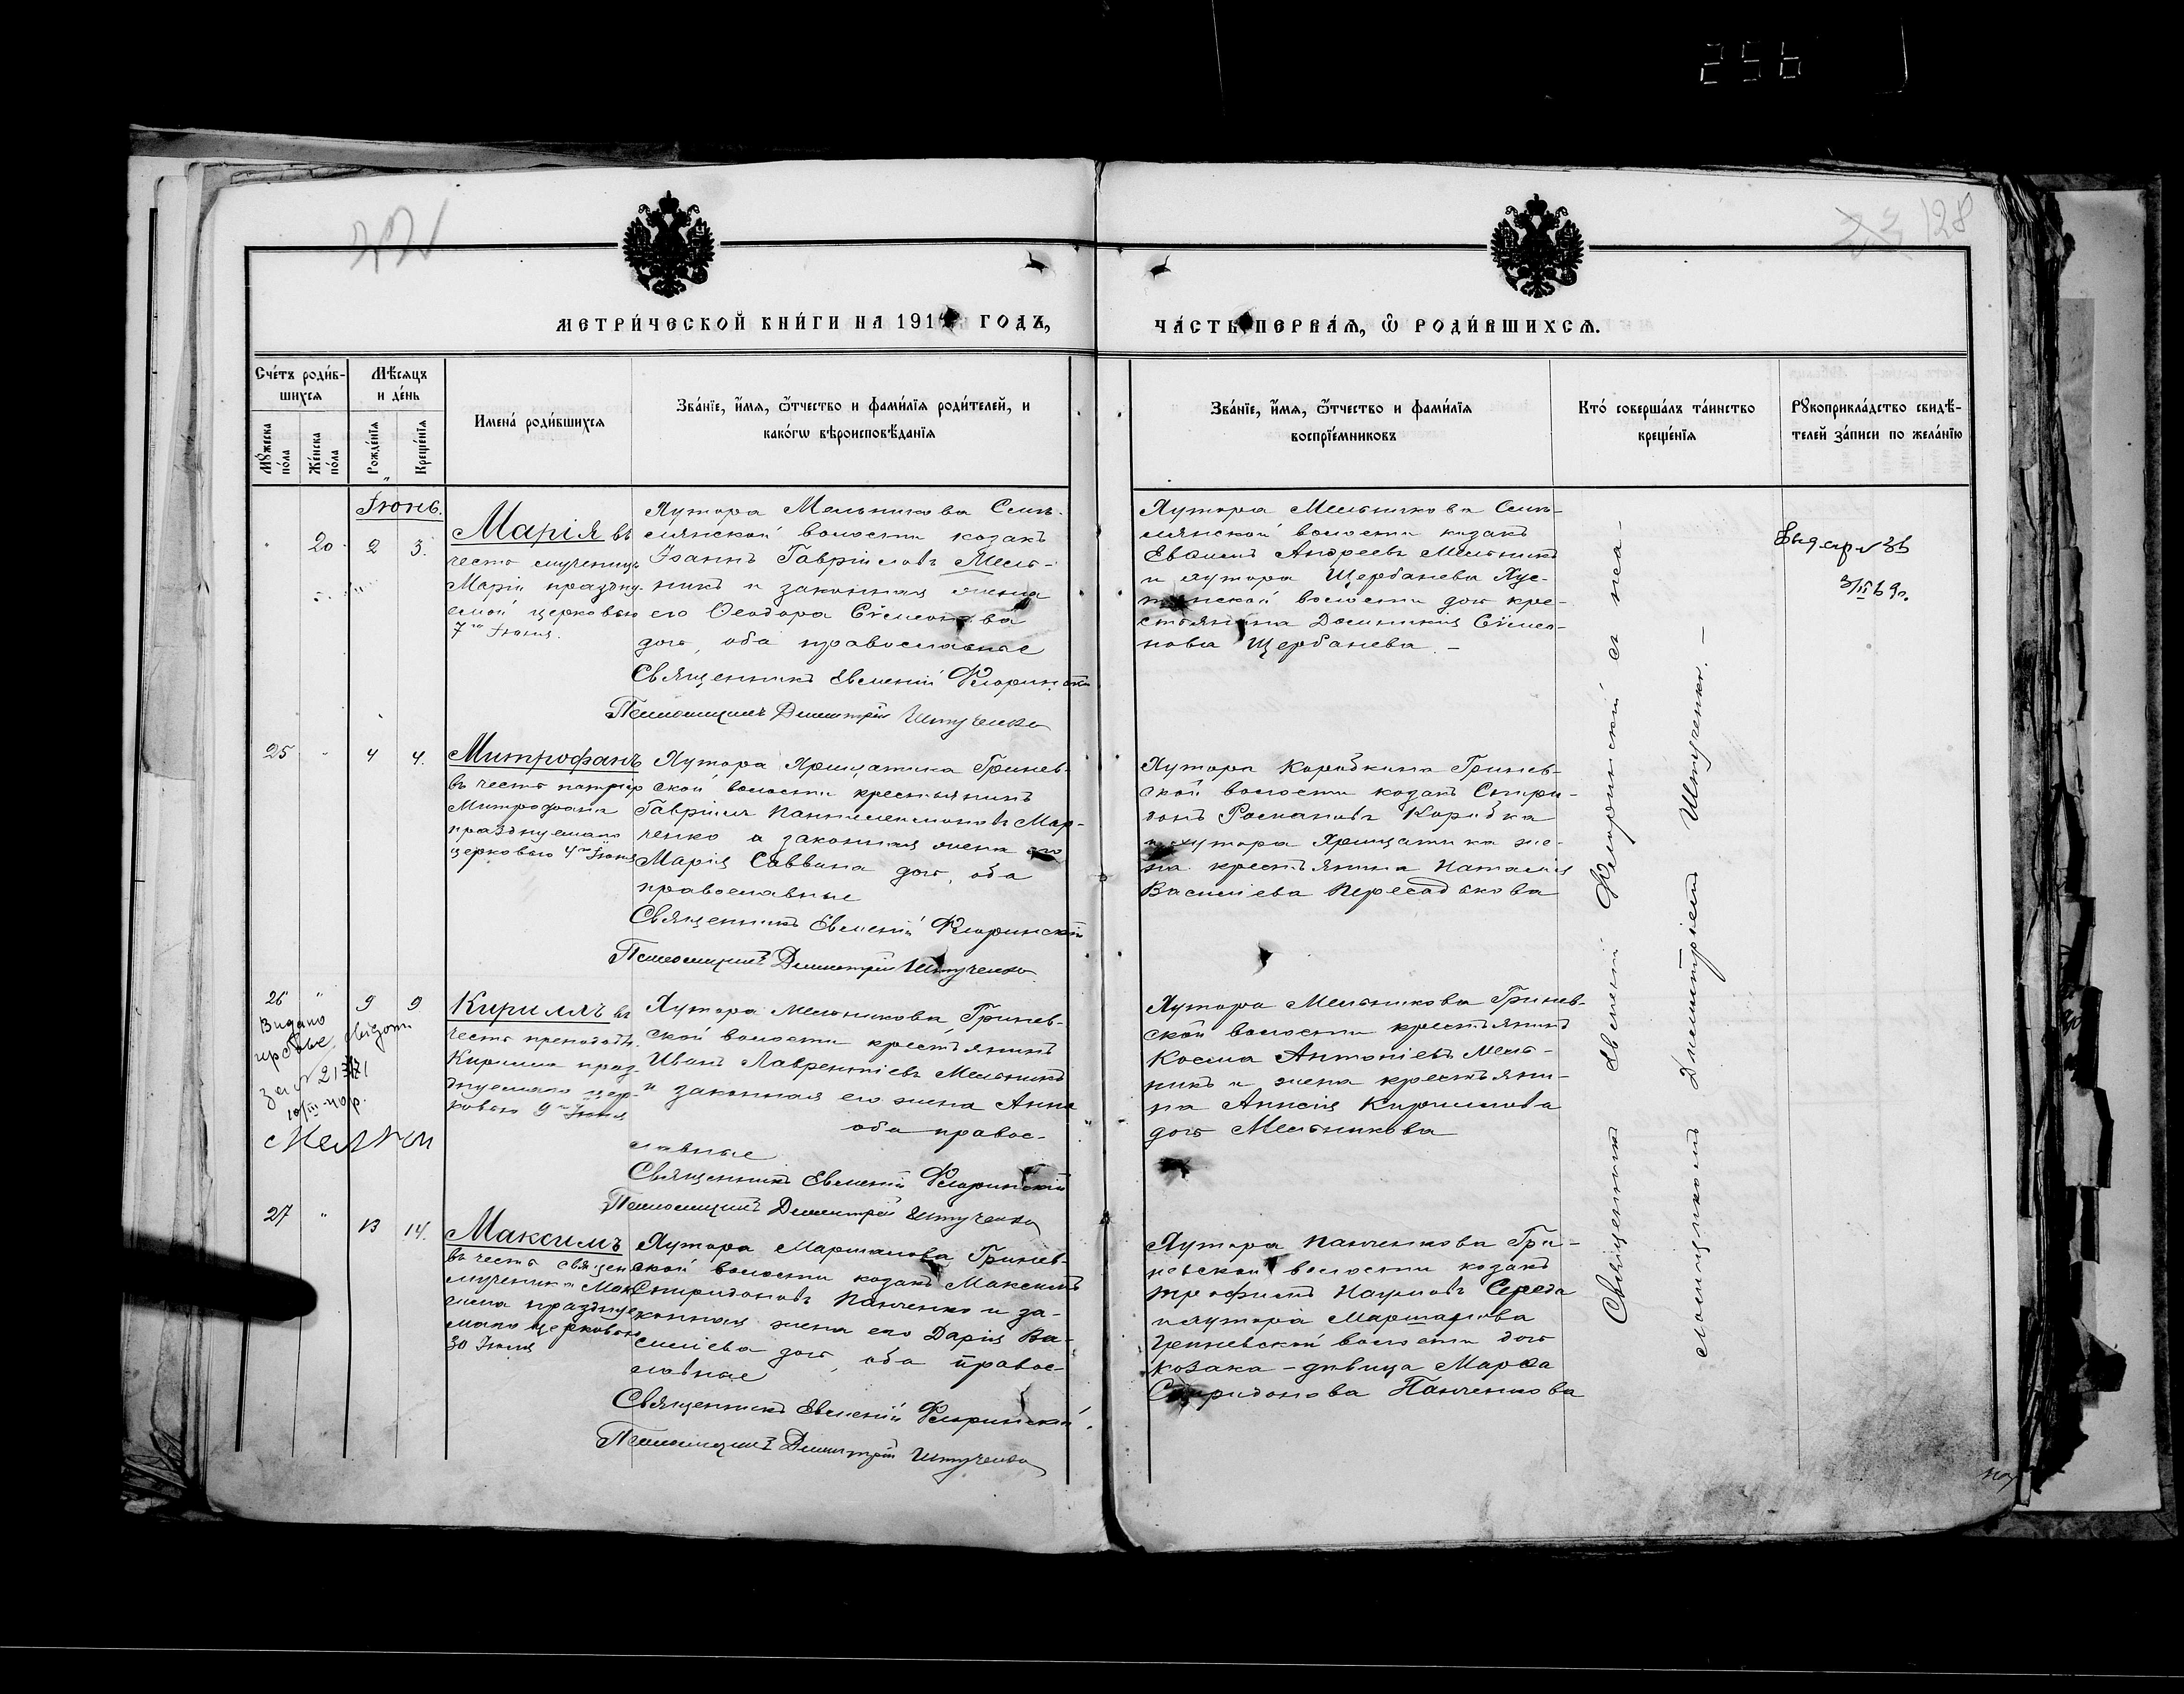 256
128
МЕТРИ́ЧЕСКОЙ КНИ́ГИ НА 191 ГОДЪ,
ЧА́СТЬ ПЕРВАЯ, Ѿ РОДИ́ВШИХСѦ.
Сче́тъ роди́в-
шихсѧ
Мѣ́сѧцъ
и де́нь
Мꙋ́жеска
по́ла
Же́нска
по́ла
Рожде́нїѧ
Креще́нїѧ
Имена́ роди́вшихсѧ
Зва́нїе, и́мѧ, ѻ҆́тчество и фами́лїѧ роди́телей, и
како́гѡ вѣроисповѣ́данїѧ
Зва́нїе, и́мѧ, ѻ҆́тчество и фами́лїѧ
воспрїе́мниковъ
Кто́ соверша́лъ та́инство
креще́нїѧ
Рꙋкоприкла́дство свидѣ́-
телей за́писи по жела́нїю
Іюнь.
20 2 3.
Марія въ
честь мученицы
Маріи праздну-
емой церковью
7го Іюня.
Хутора Мельникова
волости козакъ
Іоаннъ Гавріиловъ Мель-
никъ и законная жена
его Ѳеодора Сѵмеонова
дочь, оба православные
Священникъ Евменій Флоринскій
Псаломщикъ Димитрій Штученко
Хутора Мельникова
волости козакъ
Андреевъ Мельникъ
и хутора Щербанева
волости дочь кре-
стьянина Домникія Сѵмео-
нова Щербанева. –
25 " 4 4.
Митрофанъ
въ честь патріар
Митрофана
празднуемаго
церковью 4го Іюня
Хутора Хрищатика Гринев-
ской волости крестьянинъ
Гавріилъ Пантелеимоновъ Мар-
ченко и законная жена его
Марія Саввина дочь, оба
православные
Священникъ Евменій Флоринскій
Псаломщикъ Димитрій Штученко
Хутора Коробкина Гринев-
ской волости козакъ Спири-
донъ Романовъ Коробка
и хутора Хрищатика же-
на крестьянина Наталія
Василіева Пересадькова
26 " 9 9
Видано
за № 21
Кириллъ въ
честь преподобн.
Кирилла праз-
днуемаго цер-
ковью 9го Іюня
Хутора Мельникова Гринев-
ской волости крестьянинъ
Иванъ Лаврентіевъ Мельникъ
и законная его жена Анна
оба правос-
лавные
Священникъ Евменій Флоринскій
Псаломщикъ Димитрій Штученко
Хутора Мельникова Гринев-
ской волости крестьянинъ
Косма Антоніевъ Мель-
никъ и жена крестьяни-
на Анисія Кириллова
дочь Мельникова
27 " 13 14.
Максимъ
въ честь священ
мученика Мак
сима праздуе
маго церковью
30 Іюля
Хутора Маршалова Гринев-
ской волости козакъ Максимъ
Спиридоновъ Панченко и за-
конная жена его Дарія Ва-
силіева дочь, оба правос-
лавные
Священникъ Евменій Флоринскій
Псаломщикъ Димитрій Штученко
Хутора Панченкова Гри-
невской волости козакъ
Трофимъ Наумовъ Середа
и хутора
волости дочь
козака – дѣвица Марѳа
Спиридонова Панченкова
Священникъ Евменій Флоринскій съ пса-
ломщикомъ Димитріемъ Штученко. –